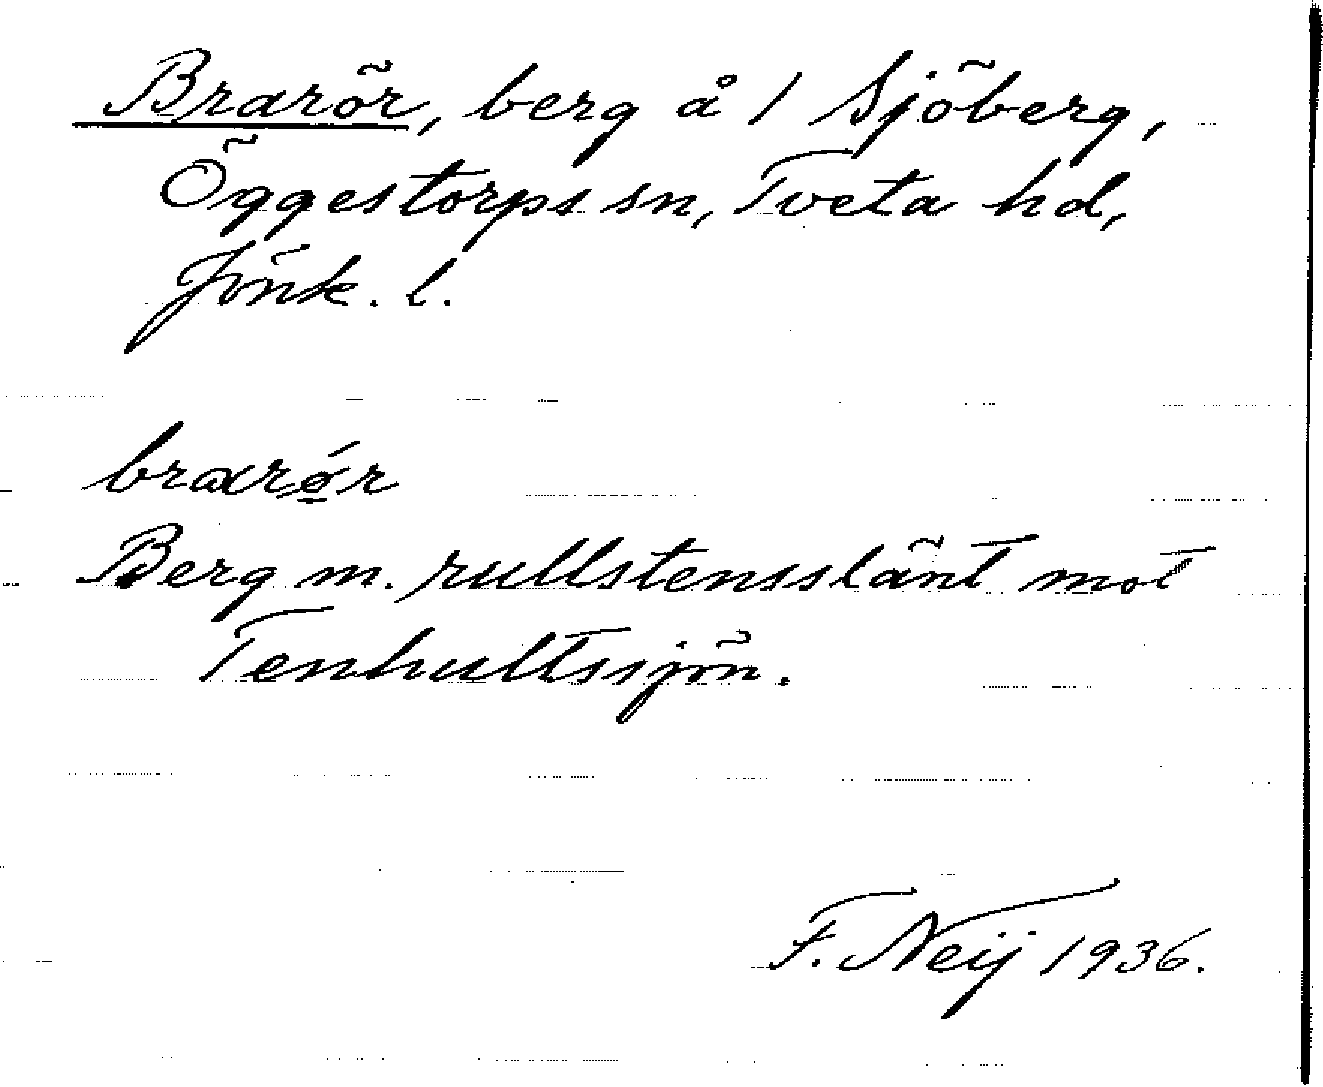 Brarör, berg å 1 Sjöberg,
Öggestorps sn, Tveta hd,
Jönk. l.
brarǿr
Berg m. rullstensslänt mot
Tenhultssjön.
F. Neij 1936.